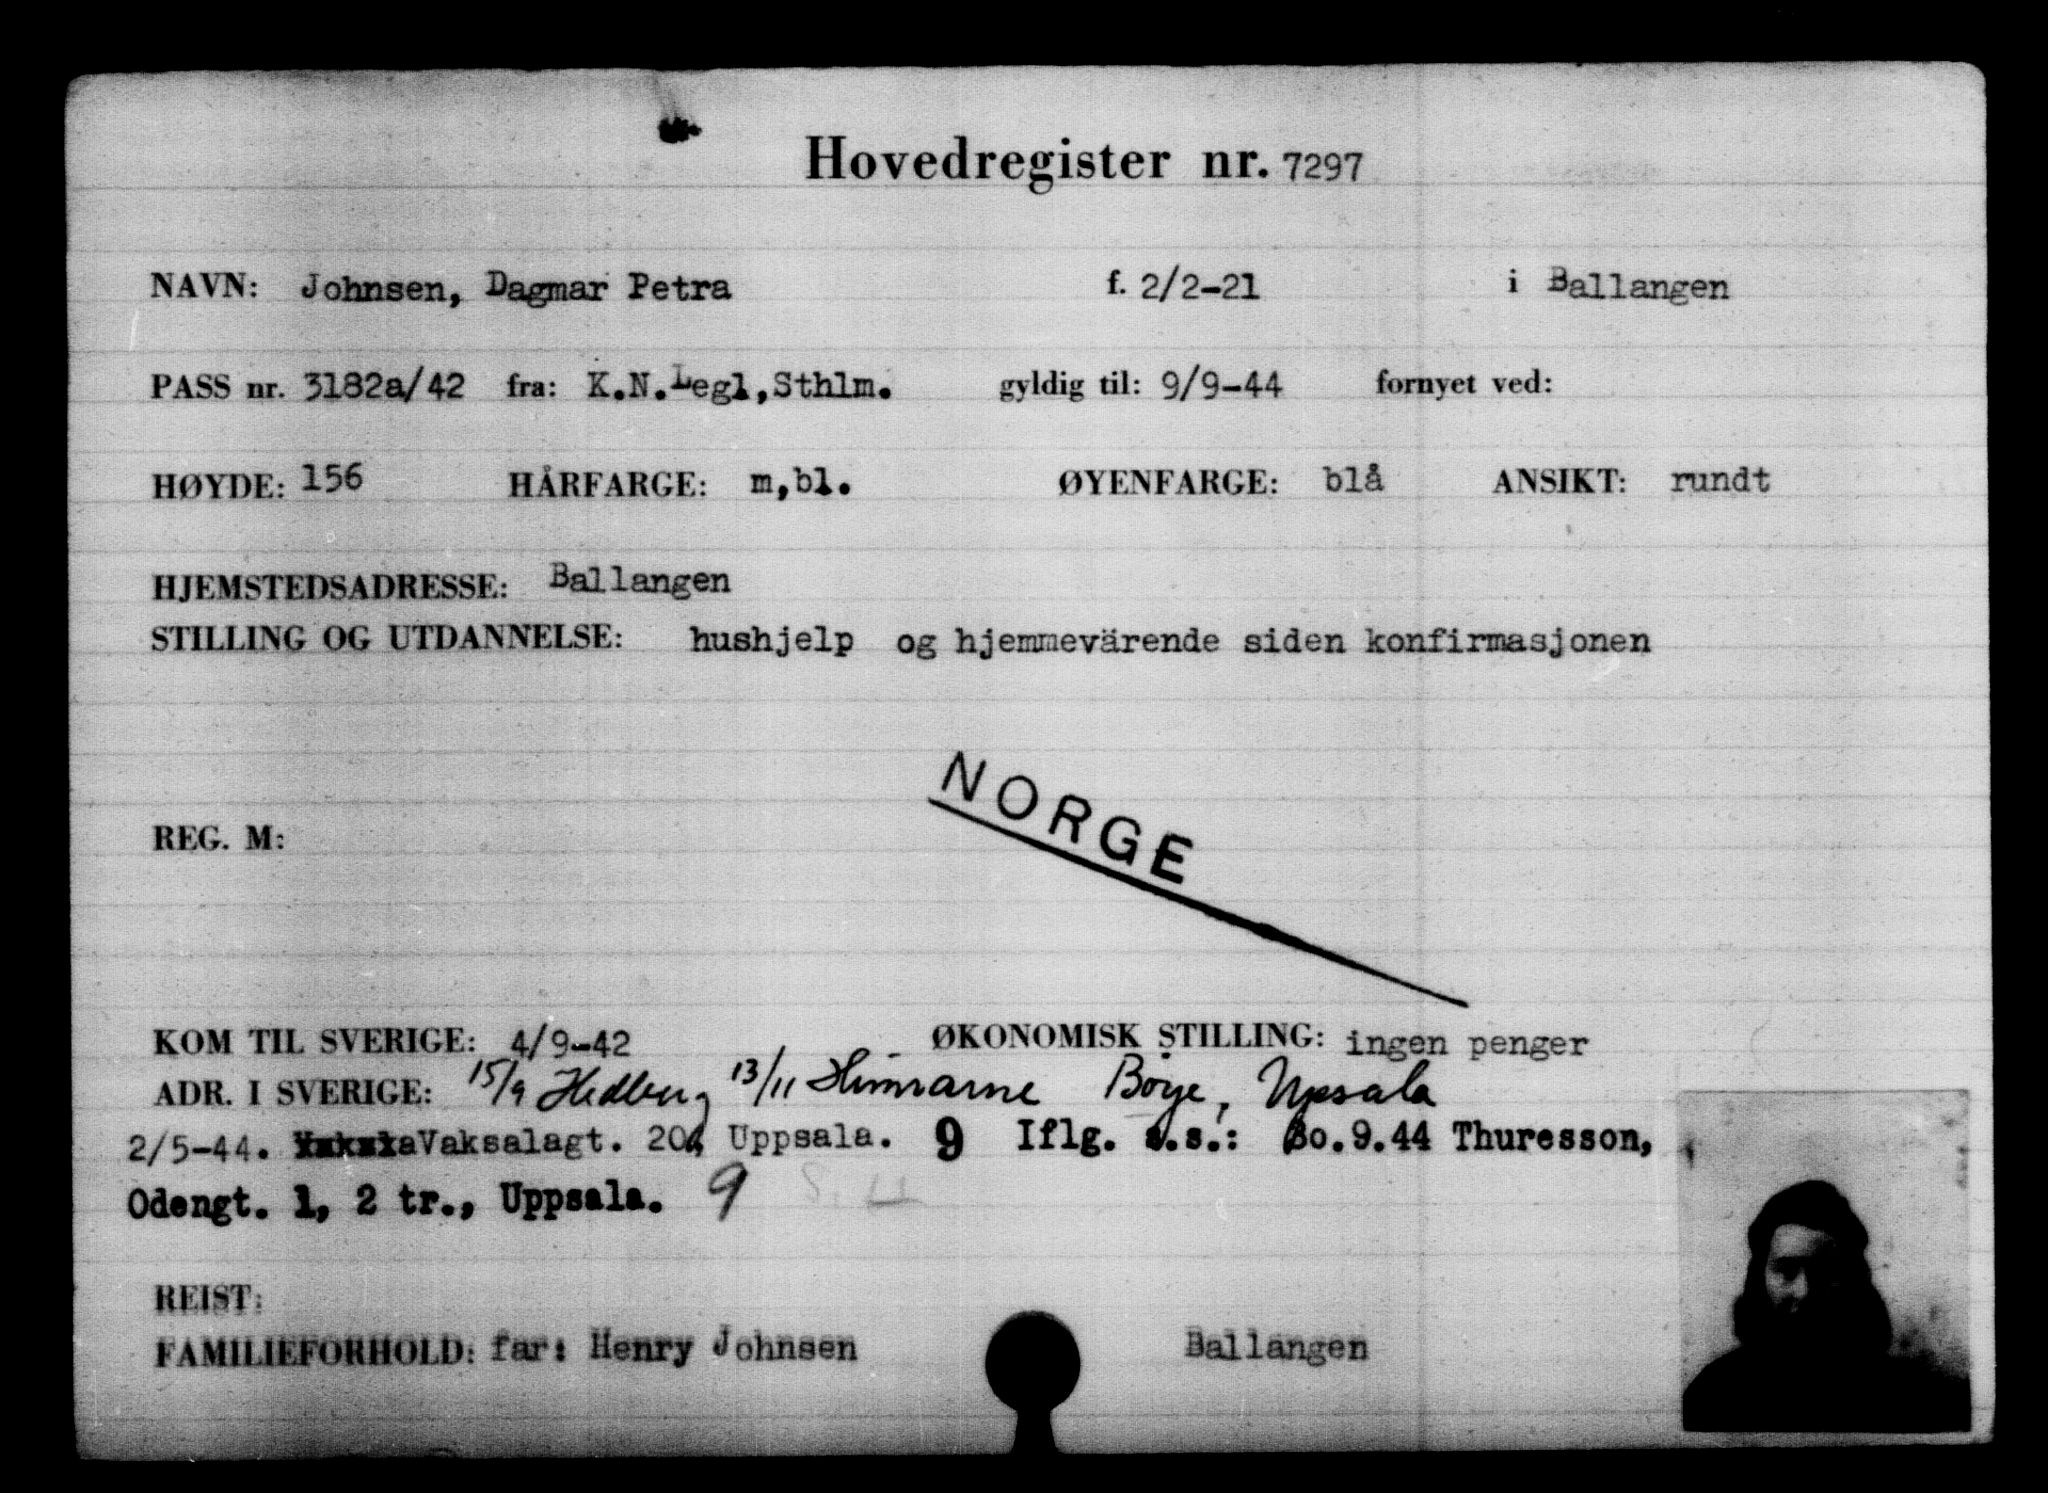 Hovedregister nr. 7297
NAVN: Johnsen, Dagmar Petra f. 2/2-21 i Ballangen
PASS nr. 3182a/42 fra: K.N.Legl,Sthlm. gyldig til: 9/9-44 fornyet ved:
HØYDE: 156 HÅRFARGE: m,bl. ØYENFARGE: blå ANSIKT: rundt
HJEMSTEDSADRESSE: Ballangen
STILLING OG UTDANNELSE: hushjelp og hjemmevärende siden konfirmasjonen
NORGE
REG. M:
KOM TIL SVERIGE: 4/9-42 ØKONOMISK STILLING: ingen penger
ADR. I SVERIGE: 15/9 Hedberg 13/11 Börje, Upsala
2/5-44. Vaksalagt. 20 Uppsala. 9 Iflg. s.s.: 30.9.44 Thuresson,
Odengt. 1, 2 tr., Uppsala. 9
REIST:
FAMILIEFORHOLD: far: Henry Johnsen Ballangen